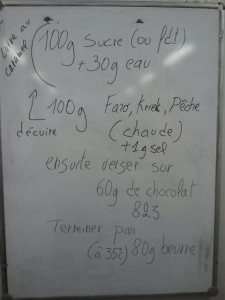 Cuire au
caramel
100g sucre (ou fdt)
+30g eau
100g Faro, Kriek, Pêche
décuire (chaude)
+1g sel
ensuite verser sur
60g de chocolat
823
Terminer par
(à 35°C) 80g beurre